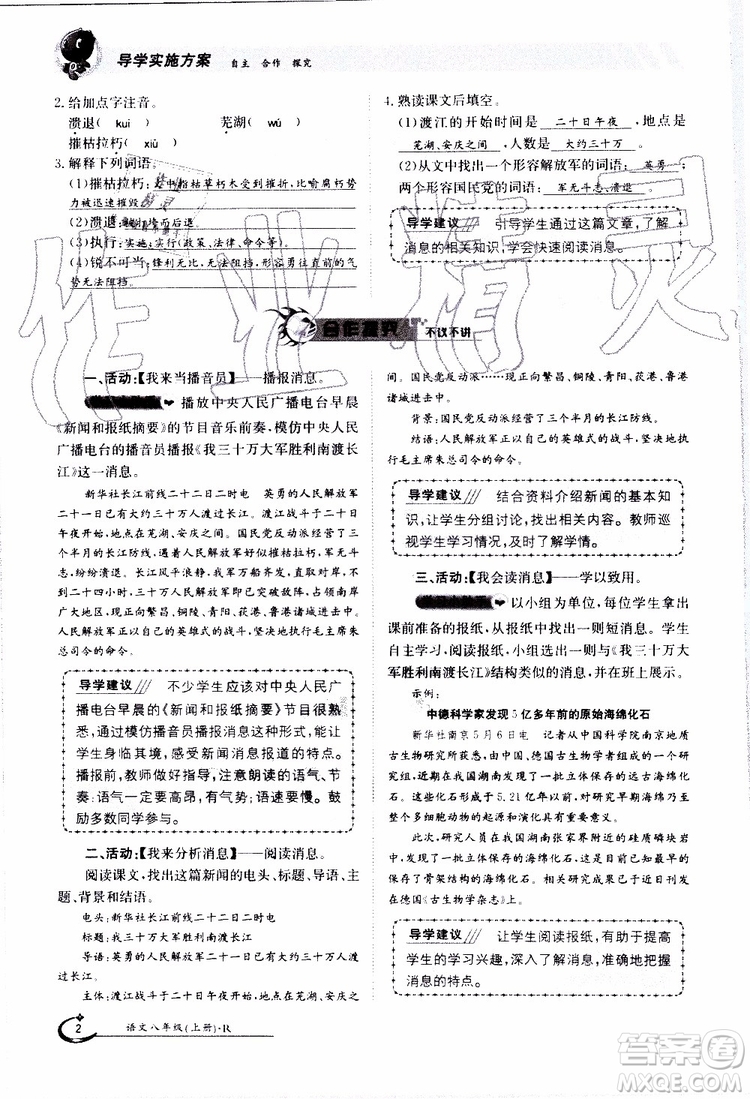 导学实施方案 自主 合作 探究
2.给加点字注音。
溃退( kuì ) 芜湖( wú )
摧枯拉朽( xiǔ )
3.解释下列词语。
(1)摧枯拉朽:
指枯草朽木受到摧折,比喻腐朽势
力被迅速摧毁
(2)溃退:
后退。
(3)执行:实施;实行(政策、法律、命令等)
(4)锐不可当:锋利无比,无法阻挡,形容勇往直前的气
势无法阻挡。
4.熟读课文后填空。
(1)渡江的开始时间是 二十日午夜 ,地点是
芜湖、安庆之间 ,人数是 大约三十万 。
(2)从文中找出一个形容解放军的词语: 英勇 ;
两个形容国民党的词语: 军无斗志、溃退 。
导学建议 引导学生通过这篇文章,了解
消息的相关知识,学会快速阅读消息。
合作探究 不议不讲
一、活动:【我来当播音员】——播报消息。
播放中央人民广播电台早晨
《新闻和报纸摘要》的节目音乐前奏,模仿中央人民
广播电台的播音员播报《我三十万大军胜利南渡长
江》这一消息。
新华社长江前线二十二日二时电 英勇的人民解放军
二十一日已有大约三十万人渡过长江。渡江战斗于二十日
午夜开始,地点在芜湖、安庆之间。国民党反动派经营了三
个半月的长江防线,遇着人民解放军好似摧枯拉朽,军无斗
志,纷纷溃退。长江风平浪静,我军万船齐放,直取对岸,不
到二十四小时,三十万人民解放军即已突破敌阵,占领南岸
广大地区,现正向繁昌、铜陵、青阳、荻港、鲁港诸城进击中。
人民解放军正以自己的英雄式的战斗,坚决地执行毛主席朱
总司令的命令。
导学建议 不少学生应该对中央人民广
播电台早晨的《新闻和报纸摘要》节目很熟
悉,通过模仿播音员播报消息这种形式,能让
学生身临其境,感受新闻消息报道的特点。
播报前,教师做好指导:注意朗读的语气、节
奏:语气一定要高昂,有气势;语速要慢。鼓
励多数同学参与。
二、活动:【我来分析消息】——阅读消息。
阅读课文,找出这篇新闻的电头、标题、导语、主
题、背景和结语。
电头:新华社长江前线二十二日二时电
标题:我三十万大军胜利南渡长江
导语:英勇的人民解放军二十一日已有大约三十万人渡
过长江。
主体:渡江战斗于二十日午夜开始,地点在芜湖、安庆之
间。国民党反动派……现正向繁昌、铜陵、青阳、荻港、鲁港
诸城进击中。
背景:国民党反动派经营了三个半月的长江防线。
结语:人民解放军正以自己的英雄式的战斗,坚决地执
行毛主席朱总司令的命令。
导学建议 结合资料介绍新闻的基本知
识,让学生分组讨论,找出相关内容。教师巡
视学生学习情况,及时了解学情。
三、活动:【我会读消息】——学以致用。
以小组为单位,每位学生拿出
课前准备的报纸,从报纸中找出一则短消息。学生
自主学习,阅读消息,小组选出一则与《我三十万大
军胜利南渡长江》结构类似的消息,并在班上展示。
示例:
中德科学家发现5亿多年前的原始海绵化石
新华社南京5月6日电 记者从中国科学院南京地质
古生物研究所获悉,由中、德国古生物学家组成的一个研
究组,近来在我国湖南发现了一批立体保存的远古海绵化
石。这些化石形成于5.21亿年以前,对研究寒武纪早期海
绵动物的起源和演化具有重要意义。
此次,研究人员在我国湖南张家界附近的硅质磷块岩
中,发现了一批立体保存的海绵化石。这是目前已知最古老
的保存了骨架结构的海绵化石。研究成果已于近日发表在
德国《古生物学杂志》上。
导学建议 让学生阅读报纸,有助于提高学
生的学习兴趣,深入了解消息的内容,掌握阅读
消息的特点。
2 语文八年级(上册)·R
作业精灵
答案圈
MXQE.COM